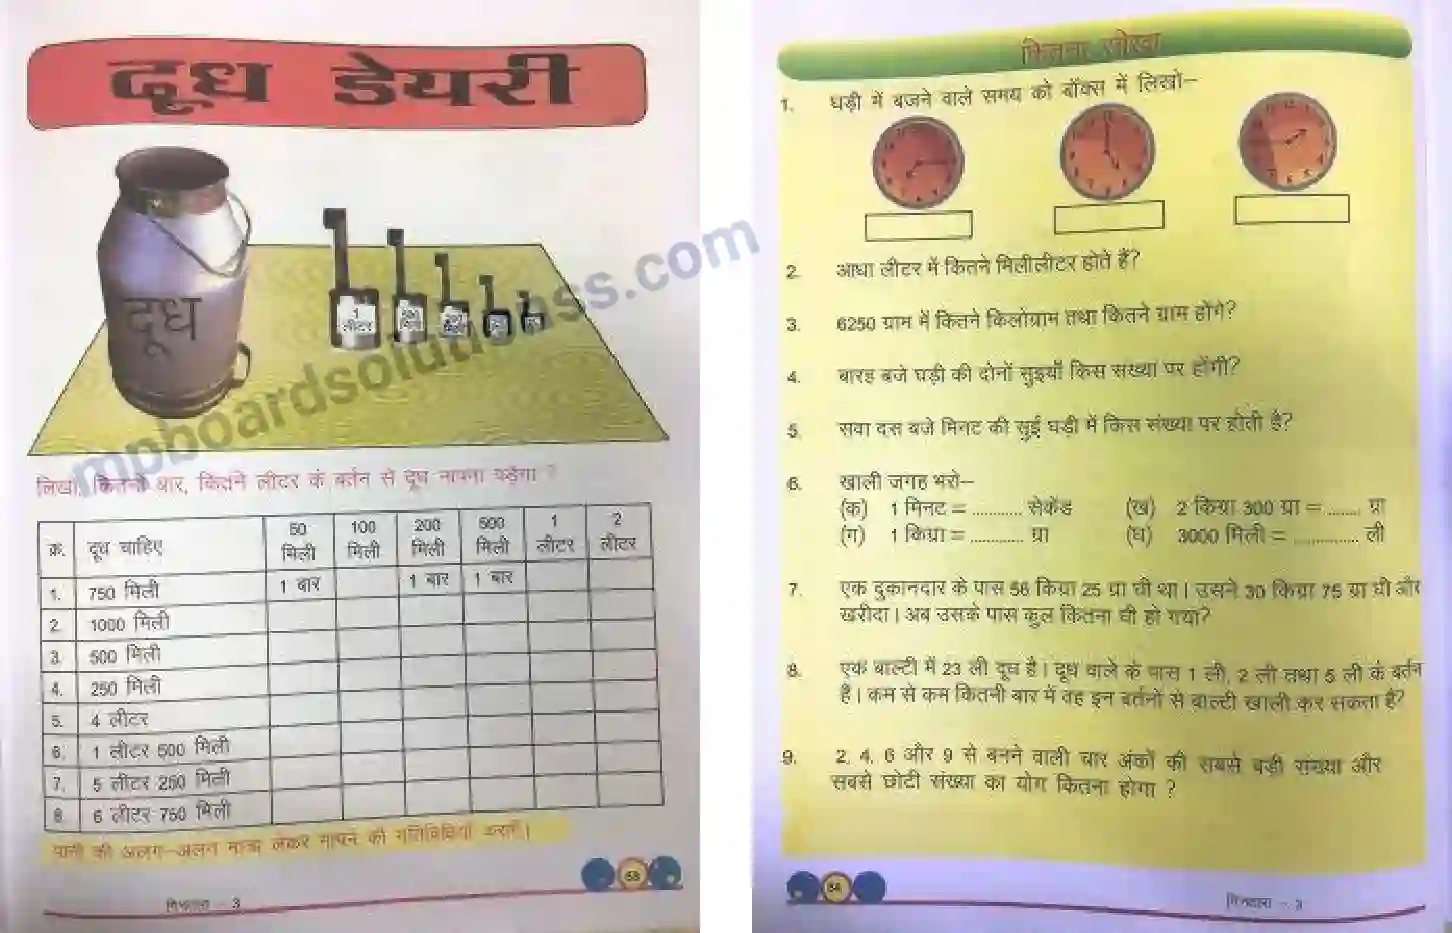 दूध डेयरी
दूध
1
लीटर
mpboardsolutionss.com
लिखो, कितनी बार, कितने लीटर के बर्तन से दूध नापना पड़ेगा ?
क्र. दूध चाहिए 50 मिली 100 मिली 200 मिली 500 मिली 1 लीटर 2 लीटर
1. 750 मिली 1 बार 1 बार 1 बार
2. 1000 मिली
3. 500 मिली
4. 250 मिली
5. 4 लीटर
6. 1 लीटर 500 मिली
7. 5 लीटर 250 मिली
8. 6 लीटर 750 मिली
पानी की अलग–अलग मात्रा लेकर नापने की गतिविधियाँ कराएँ।
3
कितना सीखा
1. घड़ी में बजने वाले समय को बॉक्स में लिखो–
2. आधा लीटर में कितने मिलीलीटर होते हैं?
3. 6250 ग्राम में कितने किलोग्राम तथा कितने ग्राम होंगे?
4. बारह बजे घड़ी की दोनों सुइयाँ किस संख्या पर होंगी?
5. सवा दस बजे मिनट की सुई घड़ी में किस संख्या पर होती है?
6. खाली जगह भरो–
(क) 1 मिनट = ........... सेकेंड (ख) 2 किग्रा 300 ग्रा = ....... ग्रा
(ग) 1 किग्रा = ............ ग्रा (घ) 3000 मिली = .............. ली
7. एक दुकानदार के पास 56 किग्रा 25 ग्रा घी था। उसने 30 किग्रा 75 ग्रा घी और
खरीदा। अब उसके पास कुल कितना घी हो गया?
8. एक बाल्टी में 23 ली दूध है। दूध वाले के पास 1 ली, 2 ली तथा 5 ली के बर्तन
हैं। कम से कम कितनी बार में वह इन बर्तनों से बाल्टी खाली कर सकता है?
9. 2, 4, 6 और 9 से बनने वाली चार अंकों की सबसे बड़ी संख्या और
सबसे छोटी संख्या का योग कितना होगा ?
3